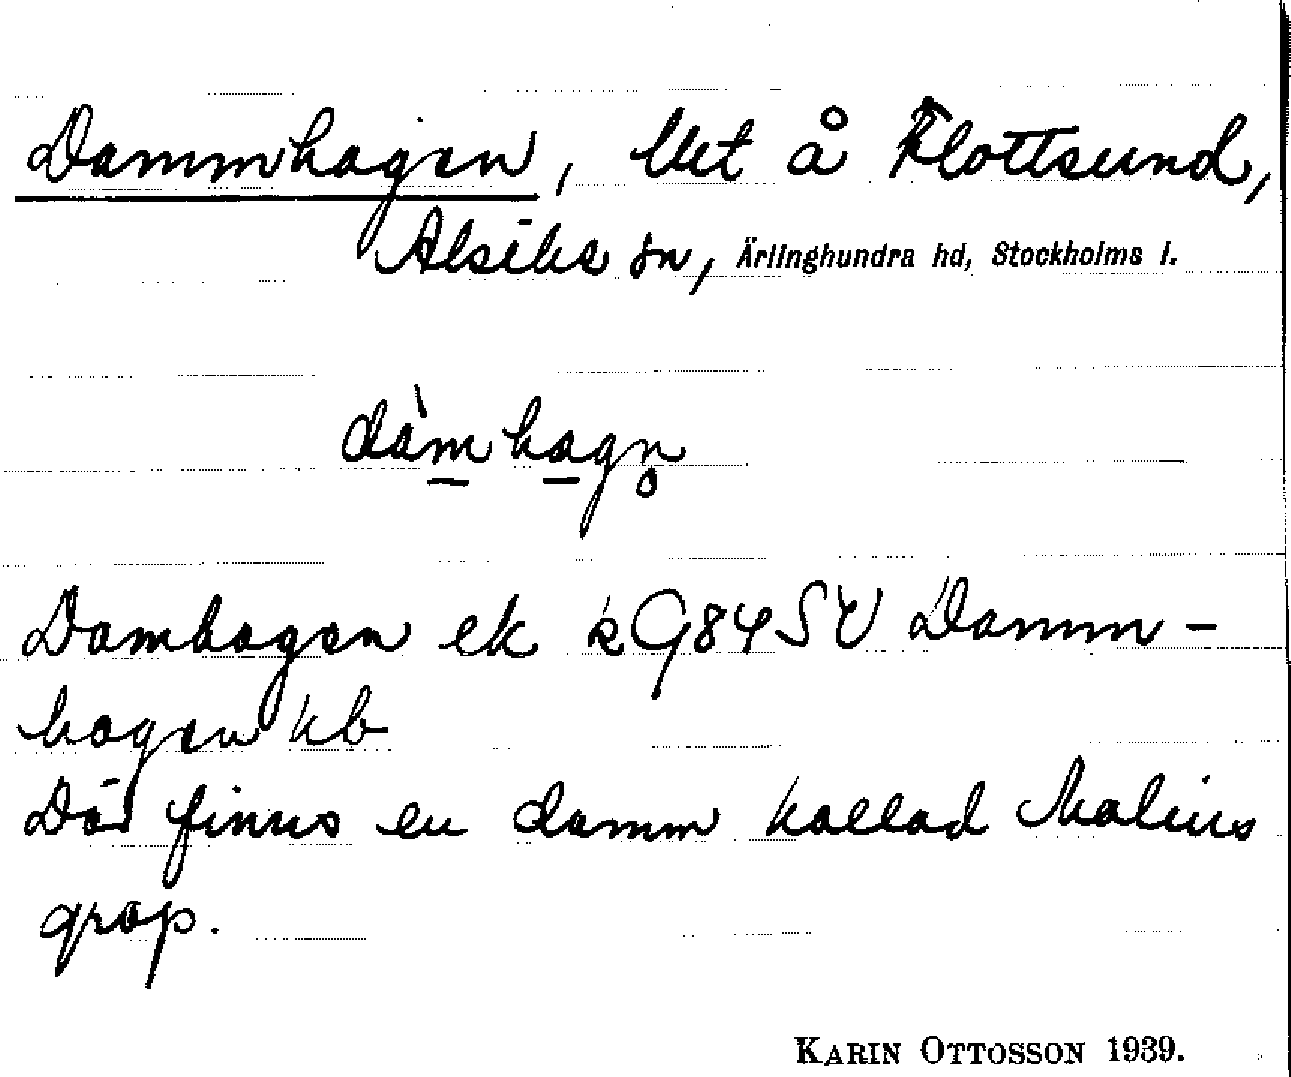 Dammhagen, bet å Flottsund,
Alsike sn, Ärlinghundra hd, Stockholms l.
dàmhagn̥
Damhagen ek k G84SV Damm-
hagen kb
Där finns en damm kallad Malins
grop.
KARIN OTTOSSON 1939.